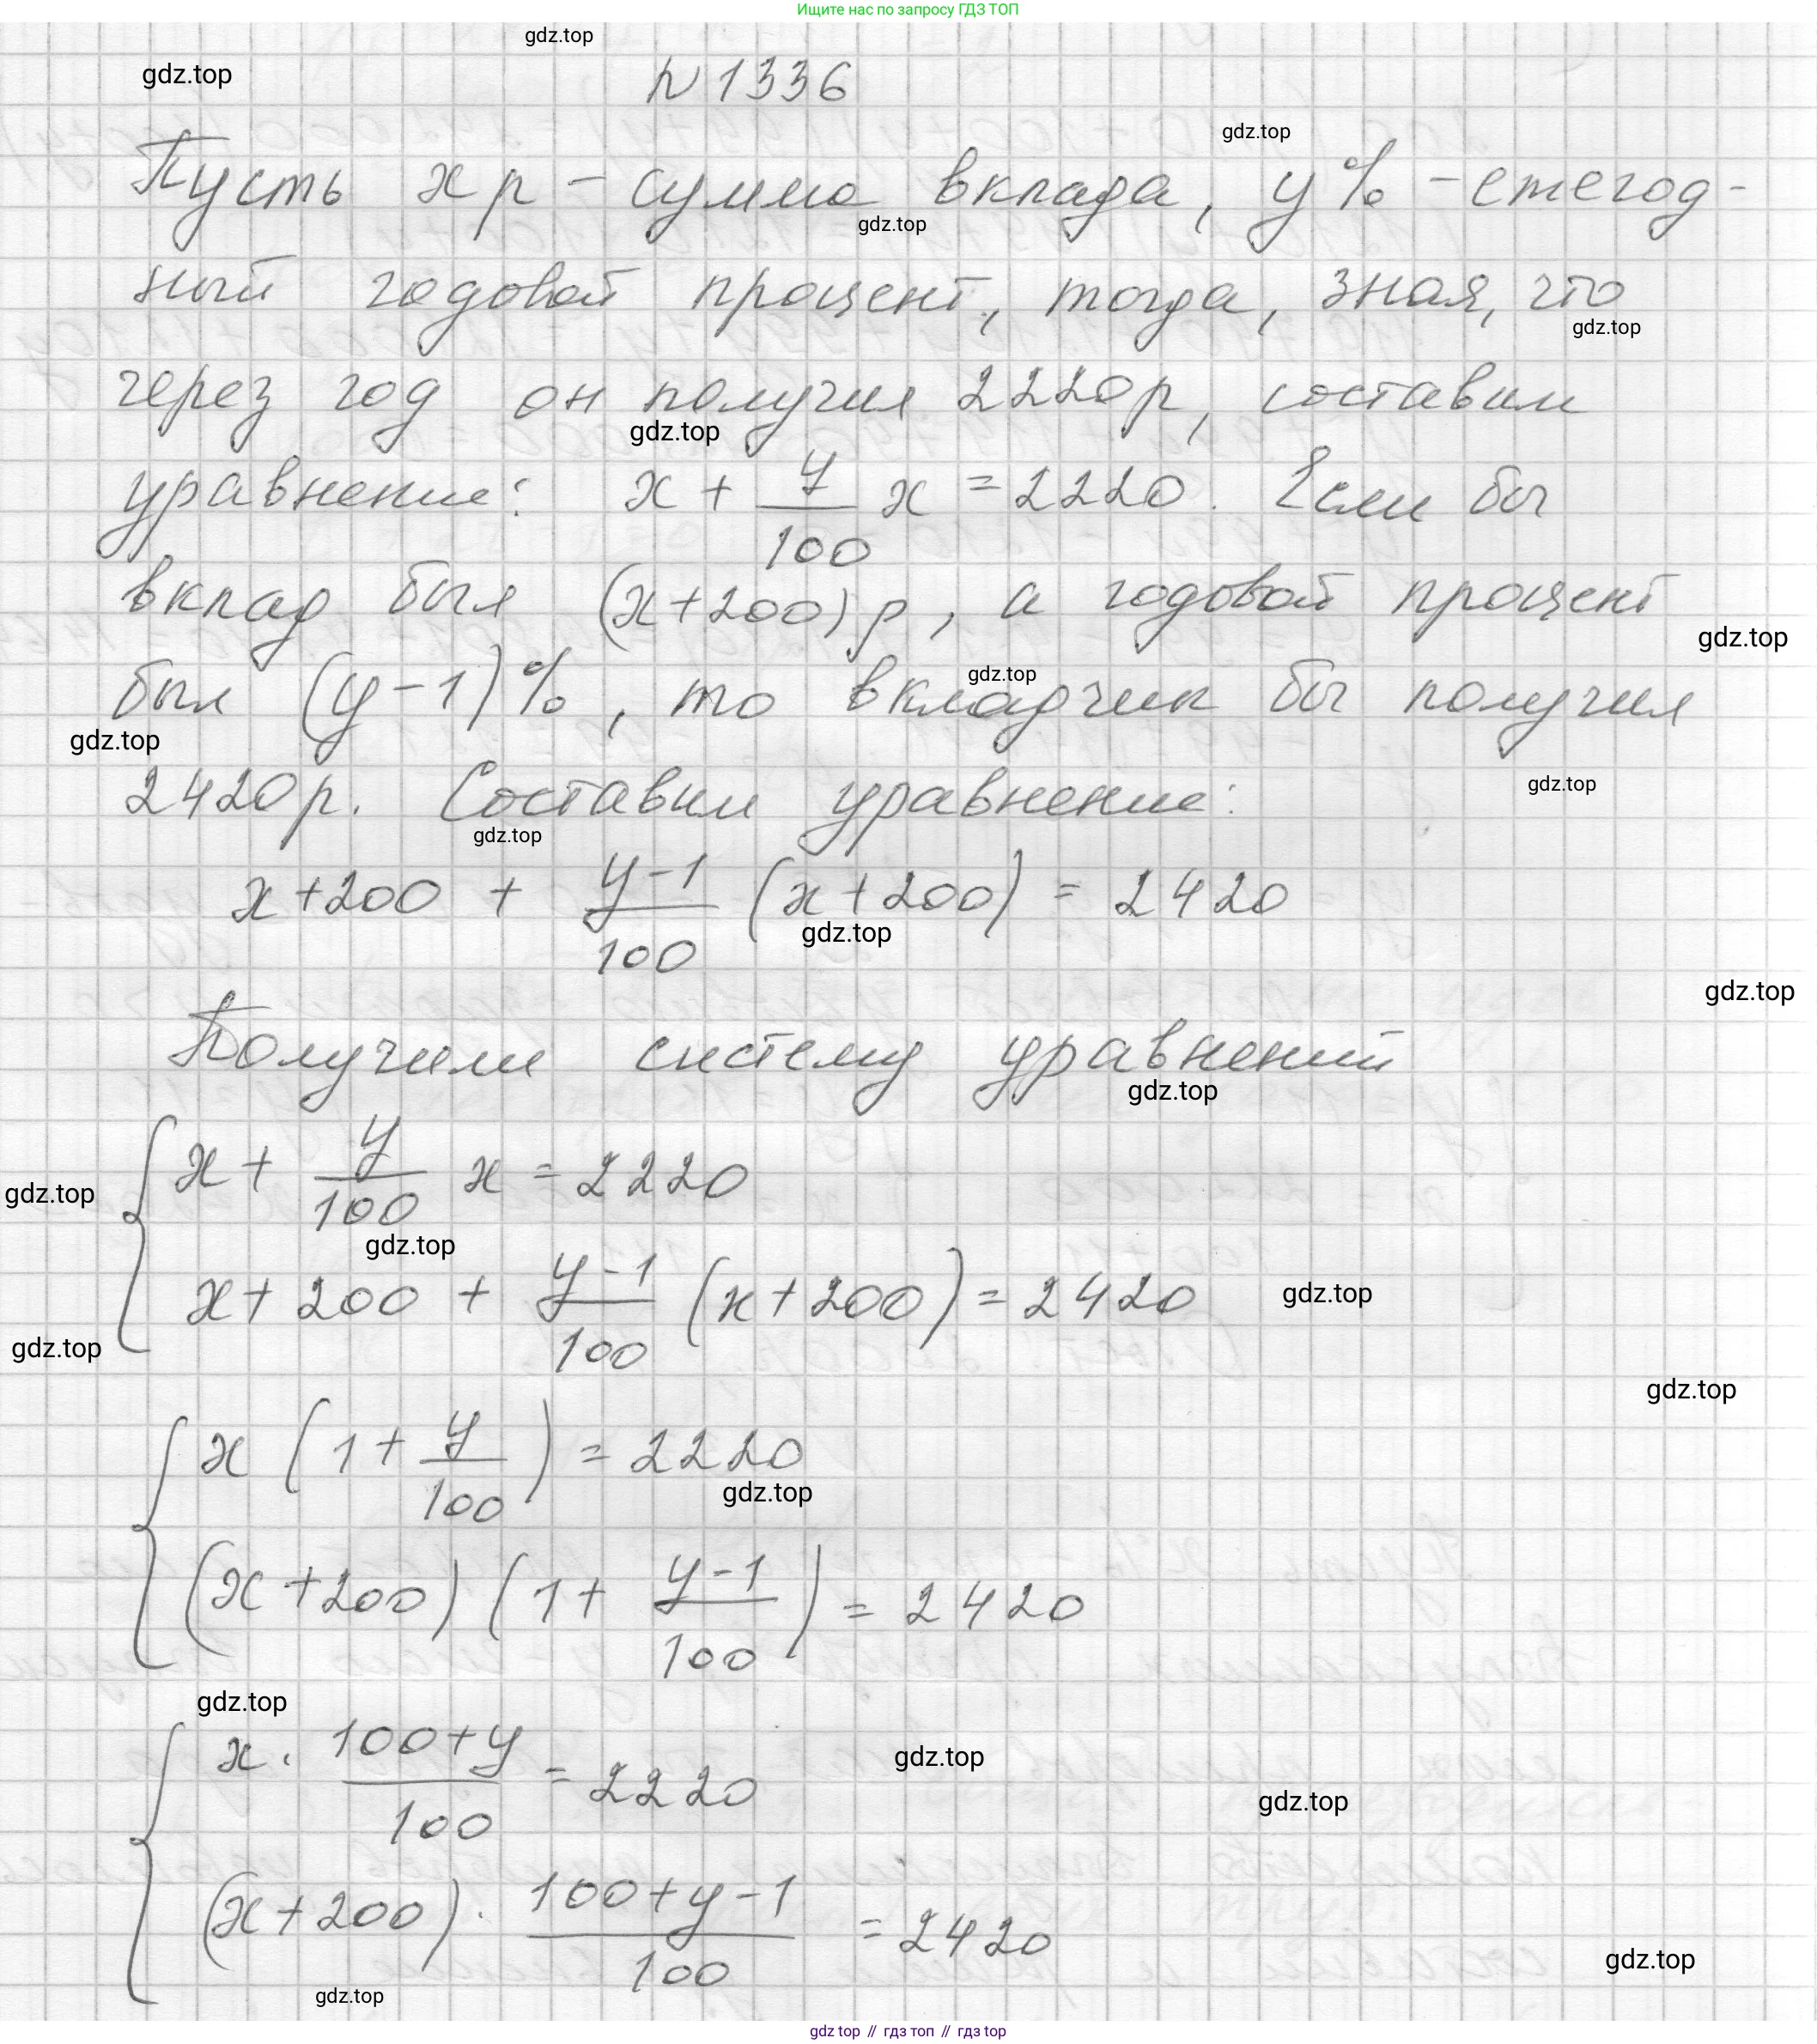 Ищите нас по запросу ГДЗ ТОП
gdz.top
gdz.top
N 1336
gdz.top
Пусть x р – сумма вклада, y% – ежегод-
gdz.top
ный годовой процент, тогда, зная, что
gdz.top
через год он получил 2220р, составим
gdz.top
уравнение: x + y/100 x = 2220. Если бы
вклад был (x+200) р, а годовой процент
gdz.top
gdz.top
был (y-1)%, то вкладчик бы получил
gdz.top
2420р. Составим уравнение:
gdz.top
gdz.top
x+200 + y-1/100 (x+200) = 2420
gdz.top
gdz.top
Получили систему уравнений
gdz.top
{ x + y/100 x = 2220
gdz.top
gdz.top
x + 200 + y-1/100 (x+200) = 2420
gdz.top
gdz.top
gdz.top
{ x (1 + y/100) = 2220
gdz.top
(x+200) (1 + y-1/100) = 2420
gdz.top
{ x · 100+y/100 = 2220
gdz.top
gdz.top
(x+200) · 100+y-1/100 = 2420
gdz.top
gdz.top
gdz top // гдз топ // гдз top